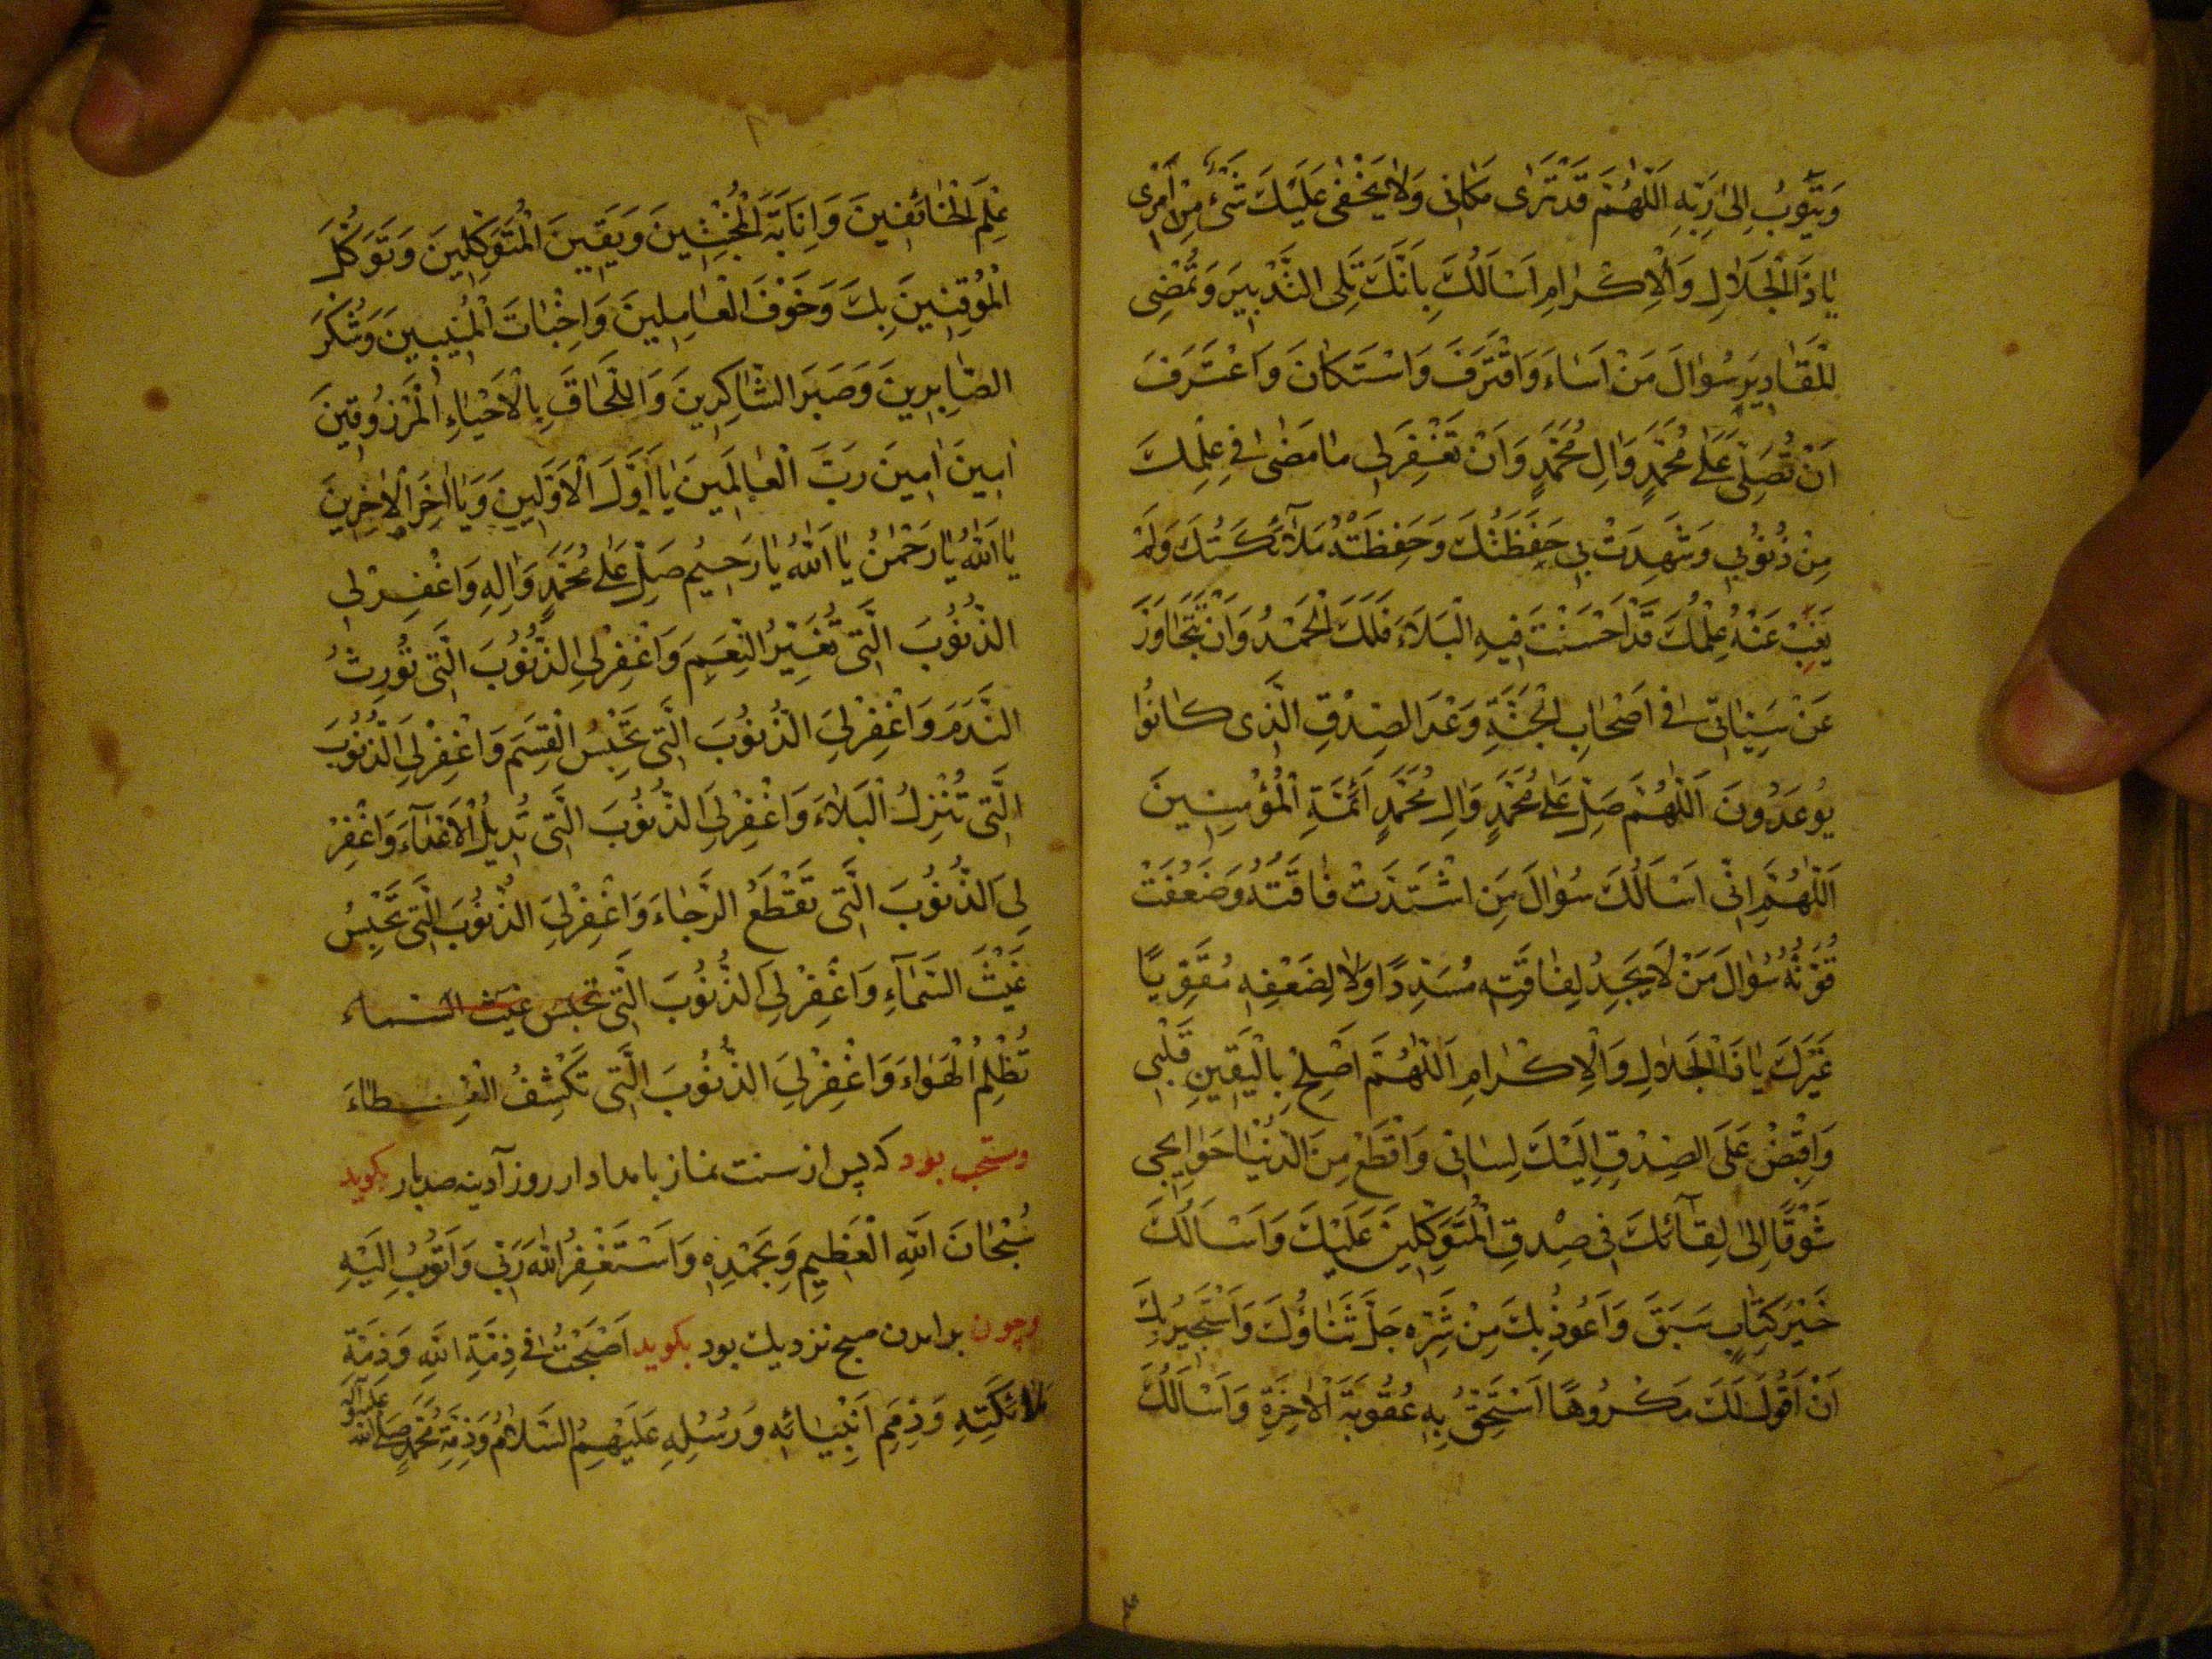 وَيَتُوبُ اِلىٰ رَبِّهِ اَللّٰهُمَّ قَدْ تَرٰى مَكانى وَلا يَخْفىٰ عَلَيْكَ شَىْءٌ مِنْ اَمْرى
يٰا ذَا الْجَلالِ وَالْاِكْرٰامِ اَسْاَلُكَ بِاَنَّكَ تَلِى التَّدْبيرَ وَتُمْضِى
الْمَقٰاديرَ سُؤٰالَ مَنْ اَسٰاءَ وَاقْتَرَفَ وَاسْتَكٰانَ وَاعْتَرَفَ
اَنْ تُصَلِّىَ عَلىٰ مُحَمَّدٍ وَاٰلِ مُحَمَّدٍ وَاَنْ تَغْفِرَ لى مٰا مَضىٰ فى عِلْمِكَ
مِنْ ذُنُوبى وَشَهِدَتْ بِى حَفَظَتُكَ وَحَفِظَتْهُ مَلاٰئِكَتُكَ وَلَمْ
يَغِبْ عَنْهُ عِلْمُكَ قَدْ اَحْسَنْتَ فيهِ الْبَلاٰءَ فَلَكَ الْحَمْدُ وَاَنْ تَتَجٰاوَزَ
عَنْ سَيِّئاتى فى اَصْحٰابِ الْجَنَّةِ وَعْدَ الصِّدْقِ الَّذى كٰانُوا
يُوعَدُونَ اَللّٰهُمَّ صَلِّ عَلىٰ مُحَمَّدٍ وَاٰلِ مُحَمَّدٍ اَئِمَّةِ الْمُؤْمِنينَ
اَللّٰهُمَّ اِنّى اَسْاَلُكَ سُؤٰالَ مَنِ اشْتَدَّتْ فٰاقَتُهُ وَضَعُفَتْ
قُوَّتُهُ سُؤٰالَ مَنْ لاٰ يَجِدُ لِفٰاقَتِهِ مُسَدِّدًا وَلاٰ لِضَعْفِهِ مُقَوِّيًا
غَيْرَكَ يٰا ذَا الْجَلالِ وَالْاِكْرٰامِ اَللّٰهُمَّ اَصْلِحْ بِالْيَقينِ قَلْبى
وَاقْبِضْ عَلَى الصِّدْقِ اِلَيْكَ لِسٰانى وَاقْطَعْ مِنَ الدُّنْيٰا حَوٰايِجى
شَوْقًا اِلىٰ لِقٰآئِكَ فى صِدْقِ الْمُتَوَكِّلينَ عَلَيْكَ وَاَسْاَلُكَ
خَيْرَ كِتٰابٍ سَبَقَ وَاَعُوذُ بِكَ مِنْ شَرِّهِ جَلَّ ثَنٰاؤُكَ وَاَسْتَجيرُ بِكَ
اَنْ اَقُولَ لَكَ مَكْرُوهًا اَسْتَحِقُّ بِهِ عُقُوبَةَ الْاٰخِرَةِ وَاَسْاَلُكَ
عِلْمَ الْخٰائِفينَ وَاِنٰابَةَ الْمُخْبِتينَ وَيَقينَ الْمُتَوَكِّلينَ وَتَوَكُّلَ
الْمُوقِنينَ بِكَ وَخَوْفَ الْعٰامِلينَ وَاِخْبٰاتَ الْمُنيبينَ وَشُكْرَ
الصّٰابِرينَ وَصَبْرَ الشّٰاكِرينَ وَاللَّحٰاقَ بِالْاَحْيٰاءِ الْمَرْزُوقينَ
اٰمينَ اٰمينَ رَبَّ الْعٰالَمينَ يٰا اَوَّلَ الْاَوَّلينَ وَيٰا اٰخِرَ الْاٰخِرينَ
يٰا اَللّٰهُ يٰا رَحْمٰنُ يٰا اَللّٰهُ يٰا رَحيمُ صَلِّ عَلىٰ مُحَمَّدٍ وَاٰلِهِ وَاغْفِرْ لى
الذُّنُوبَ الَّتى تُغَيِّرُ النِّعَمَ وَاغْفِرْ لِىَ الذُّنُوبَ الَّتى تُورِثُ
النَّدَمَ وَاغْفِرْ لِىَ الذُّنُوبَ الَّتى تَحْبِسُ الْقِسَمَ وَاغْفِرْ لِىَ الذُّنُوبَ
الَّتى تُنْزِلُ الْبَلاٰءَ وَاغْفِرْ لِىَ الذُّنُوبَ الَّتى تُديلُ الْاَعْدٰآءَ وَاغْفِرْ
لِىَ الذُّنُوبَ الَّتى تَقْطَعُ الرَّجٰاءَ وَاغْفِرْ لِىَ الذُّنُوبَ الَّتى تَحْبِسُ
غَيْثَ السَّمٰآءِ وَاغْفِرْ لِىَ الذُّنُوبَ الَّتى تحبس غيث السماء
تُظْلِمُ الْهَوٰاءَ وَاغْفِرْ لِىَ الذُّنُوبَ الَّتى تَكْشِفُ الْغِطٰاءَ
ومستحب بود كه پس از سنت نماز بامداد از روز آدينه صد بار بكويد
سُبْحٰانَ اللّٰهِ الْعَظيمِ وَبِحَمْدِهِ وَاَسْتَغْفِرُ اللّٰهَ رَبّى وَاَتُوبُ اِلَيْهِ
وچون برامدن صبح نزديك بود بكويد اَصْبَحْتُ فى ذِمَّةِ اللّٰهِ وَذِمَّةِ
مَلاٰئِكَتِهِ وَذِمَمِ اَنْبِيٰائِهِ وَرُسُلِهِ عَلَيْهِمُ السَّلاٰمُ وَذِمَّةِ مُحَمَّدٍ صَلَّى اللّٰهُ عليه وآله